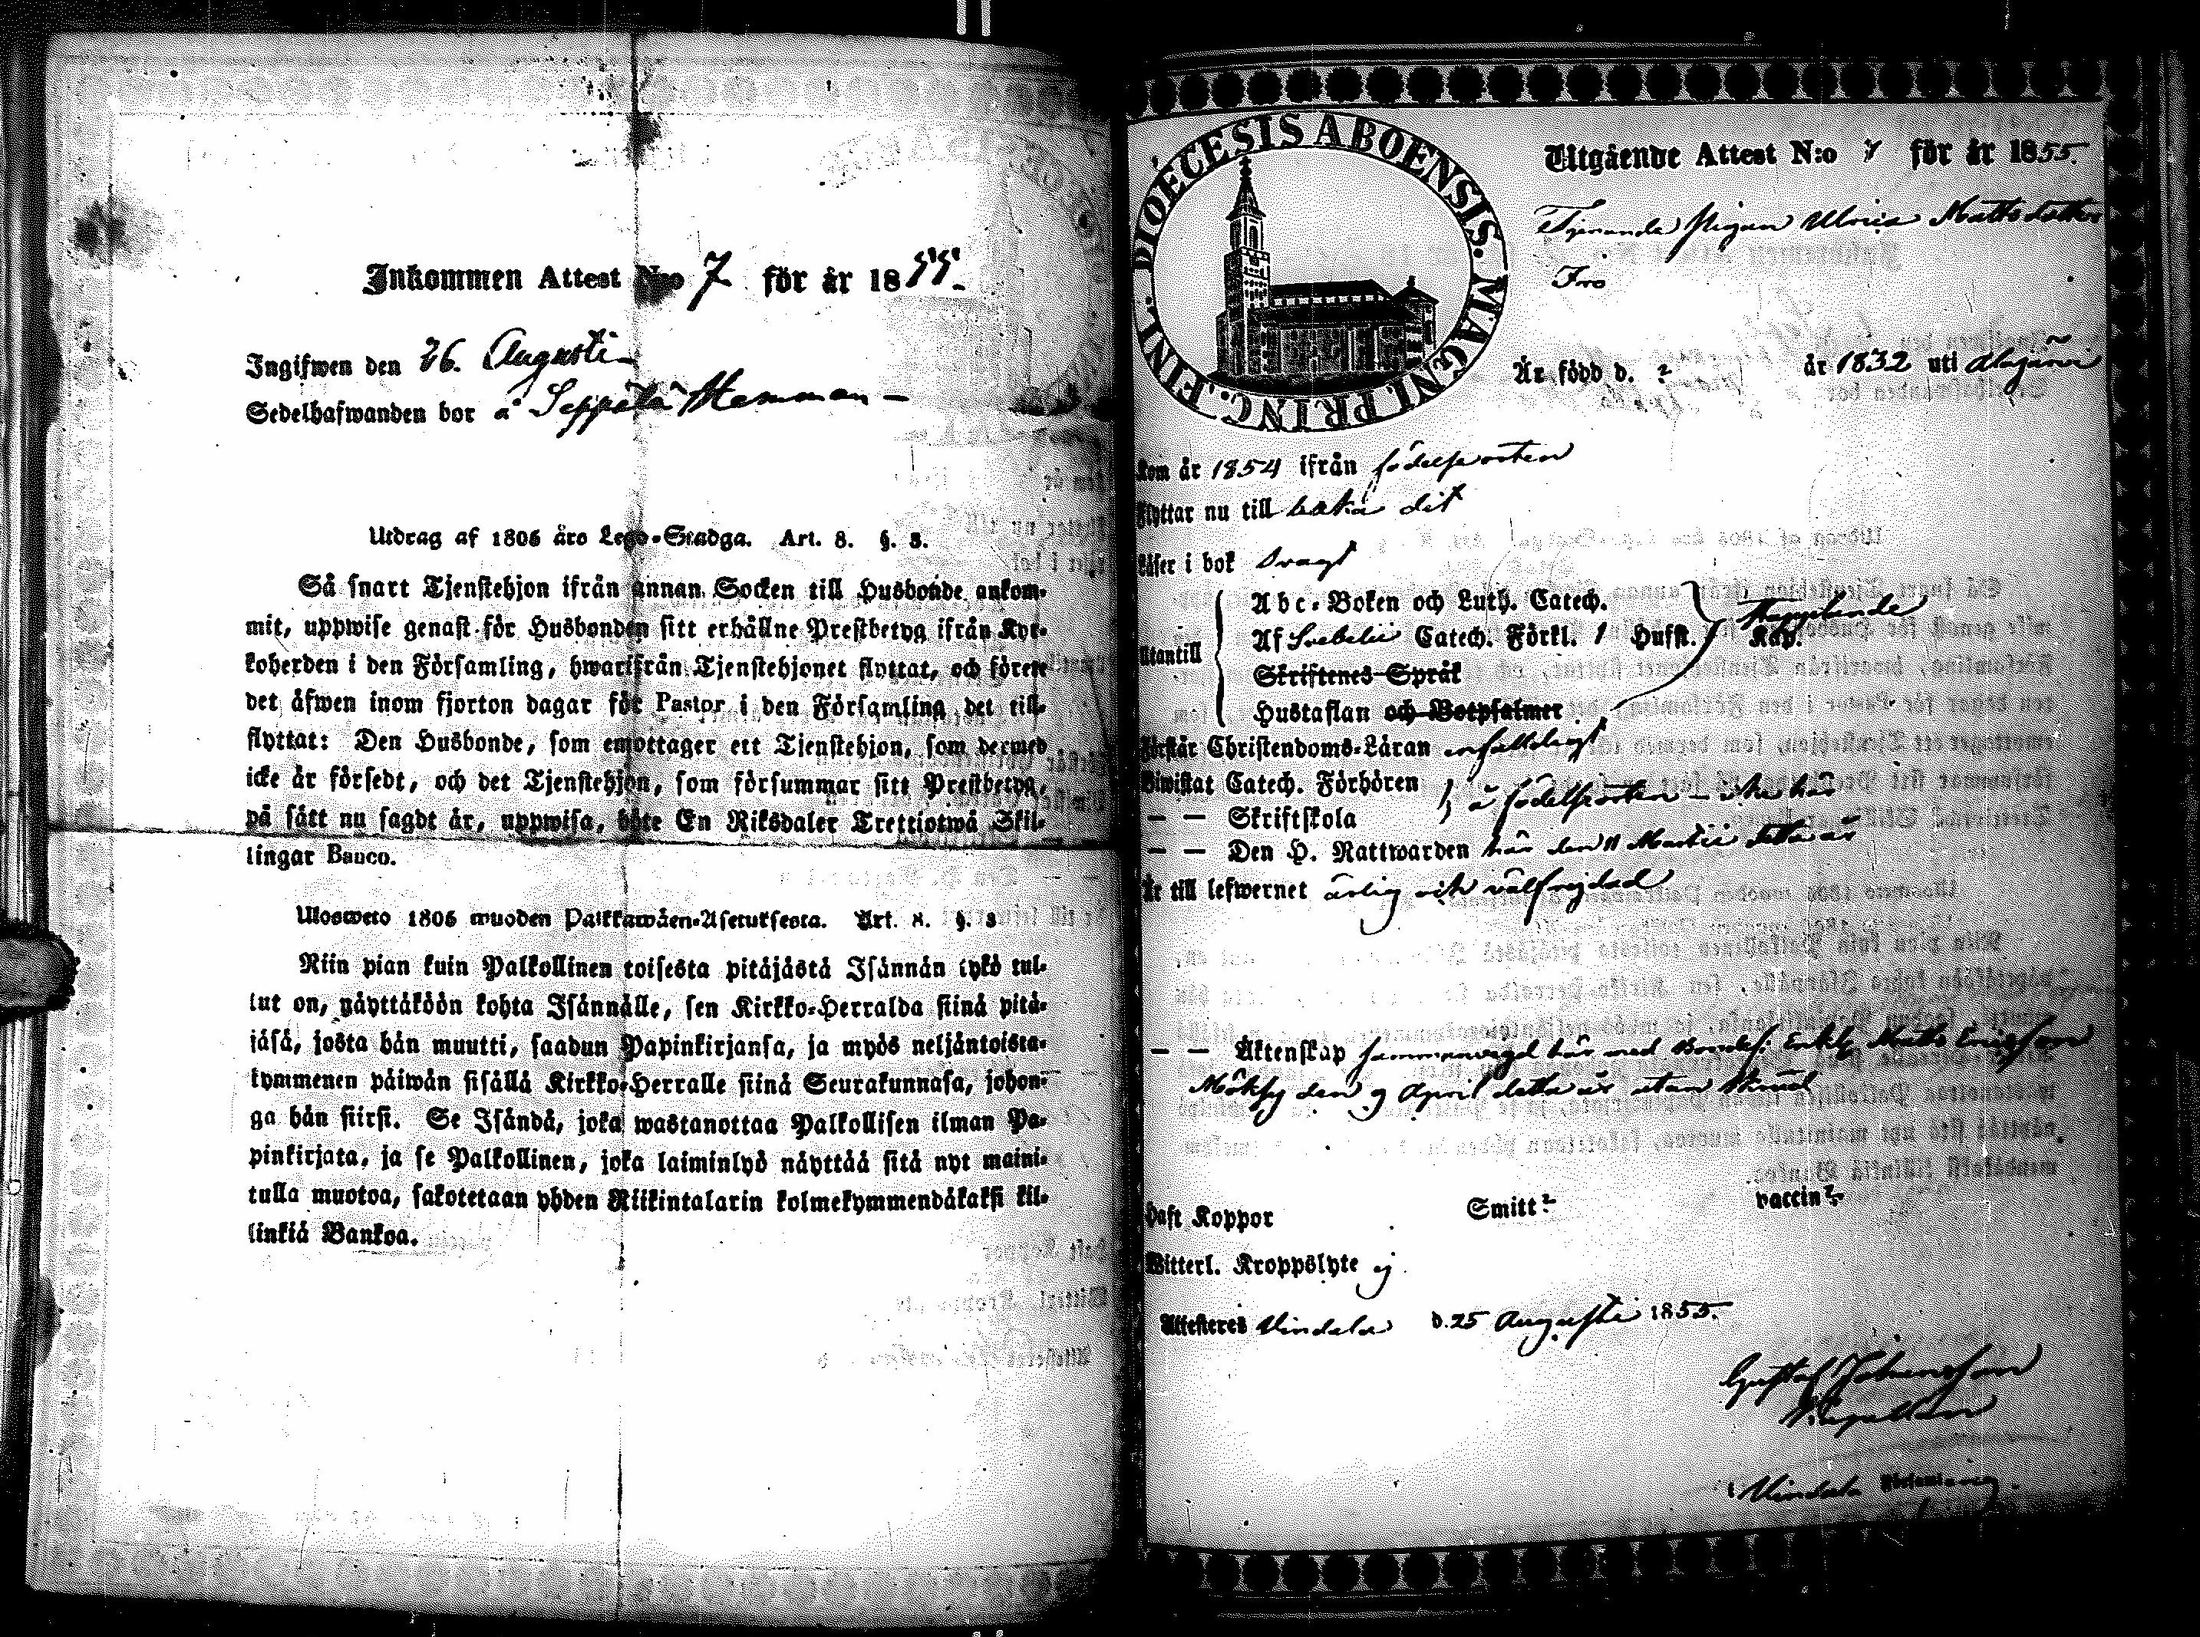 Inkommen Attest N:o 7 för år 1855.
Ingifwen den 26. Augusti
Sedelhafwanden bor å Seppälä Hemman
Utdrag af 1805 års Lego-Stadga. Art. 8. §. 3.
Så snart Tjenstehjon ifrån annan Socken till Husbonde ankom-
mit, uppwise genast för Husbonden sitt erhållne Prestbetyg ifrån Kyr-
koherden i den Församling, hwarifrån Tjenstehjonet flyttat, och förete
det äfwen inom fjorton dagar för Pastor i den Församling det till-
flyttat: Den Husbonde, som emottager ett Tjenstehjon, som dermed
icke är försedt, och det Tjenstehjon, som försummar sitt Prestbetyg,
på sätt nu sagdt är, uppwisa, böte En Riksdaler Trettiotwå Skil-
lingar Banco.
Ulosweto 1805 wuoden Palkkawäen-Asetuksesta. Art. 8. §. 3
Niin pian kuin Palkollinen toisesta pitäjästä Isännän tykö tul-
lut on, näyttäköön kohta Isännälle, sen Kirkko-Herralda siinä pitä-
jäsä, josta hän muutti, saadun Papinkirjansa, ja myös neljäntoista-
kymmenen päiwän sisällä Kirkko-Herralle siinä Seurakunnasa, johon-
ga hän siirsi. Se Isändä, joka wastanottaa Palkollisen ilman Pa-
pinkirjata, ja se Palkollinen, joka laiminlyö näyttää sitä nyt maini-
tulla muotoa, sakotetaan yhden Riikintalarin kolmekymmendäkaksi kil-
linkiä Bankoa.
DIOECESIS ABOENSIS. MAGNI. PRINC. FINL.
Utgående Attest N:o 7 för år 1855.
Tjenande pigan Ulrica Mattsdotter
Är född d. ? år 1832 uti Alajärvi
Kom år 1854 ifrån födelseorten
Flyttar nu till baka dit
Läser i bok svagt
Abc-Boken och Luth. Catech.
Utantill Af Svebelii Catech. Förkl. 1 Hufst. Kap. stapplande
Skriftenes Språk
Hustaflan och Botpsalmer
Förstår Christendoms-Läran enfaldigt
Biwistat Catech. Förhören
— — Skriftskola å födelseorten — icke här
— — Den H. Nattwarden här den 11 Martii detta år
Är till lefwernet ärlig och välfrejdad
— — Äktenskap sammanvigd här med Bondes: Enkl: Matts Ericsson
Möksy den 9 April detta år utan skrud
Haft Koppor Smitt? vaccin?
Witterl. Kroppslyte ej
Attesteras Vindala d. 25 Augusti 1855.
Gustaf Johansson
Kapellan
Vindala Församling.